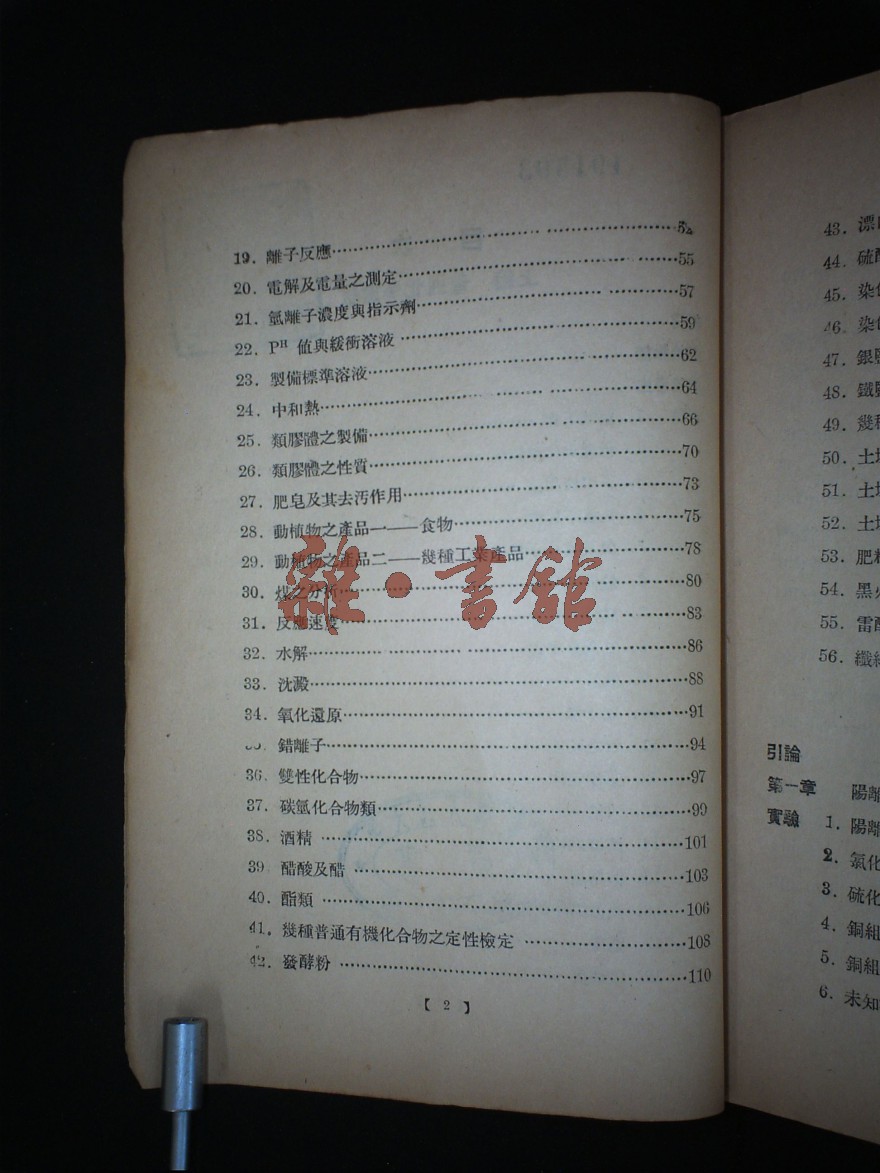 19. 離子反應 52
20. 電解及電量之測定 55
21. 氫離子濃度與指示劑 57
22. PH 値與緩衝溶液 59
23. 製備標準溶液 62
24. 中和熱 64
25. 類膠體之製備 66
26. 類膠體之性質 70
27. 肥皂及其去汚作用 73
28. 動植物之產品一——食物 75
29. 動植物之產品二——幾種工業產品 78
30. 煤之分析 80
31. 反應速度 83
32. 水解 86
33. 沈澱 88
34. 氧化還原 91
錯離子 94
36. 雙性化合物 97
37. 碳氫化合物類 99
38. 酒精 101
39 醋酸及醋 103
40. 酯類 106
41. 幾種普通有機化合物之定性檢定 108
42. 發酵粉 110
【 2 】
雜·書館
43. 漂
44. 硫
45. 染
46. 染
47. 銀
48. 鐵
49. 幾
50. 土
51. 土
52. 土
53. 肥
54. 黑
55. 雷
56. 纖
引論
第一章 陽離
實驗 1. 陽離
2. 氯化
3. 硫化
4. 銅組
5. 銅組
6. 未知